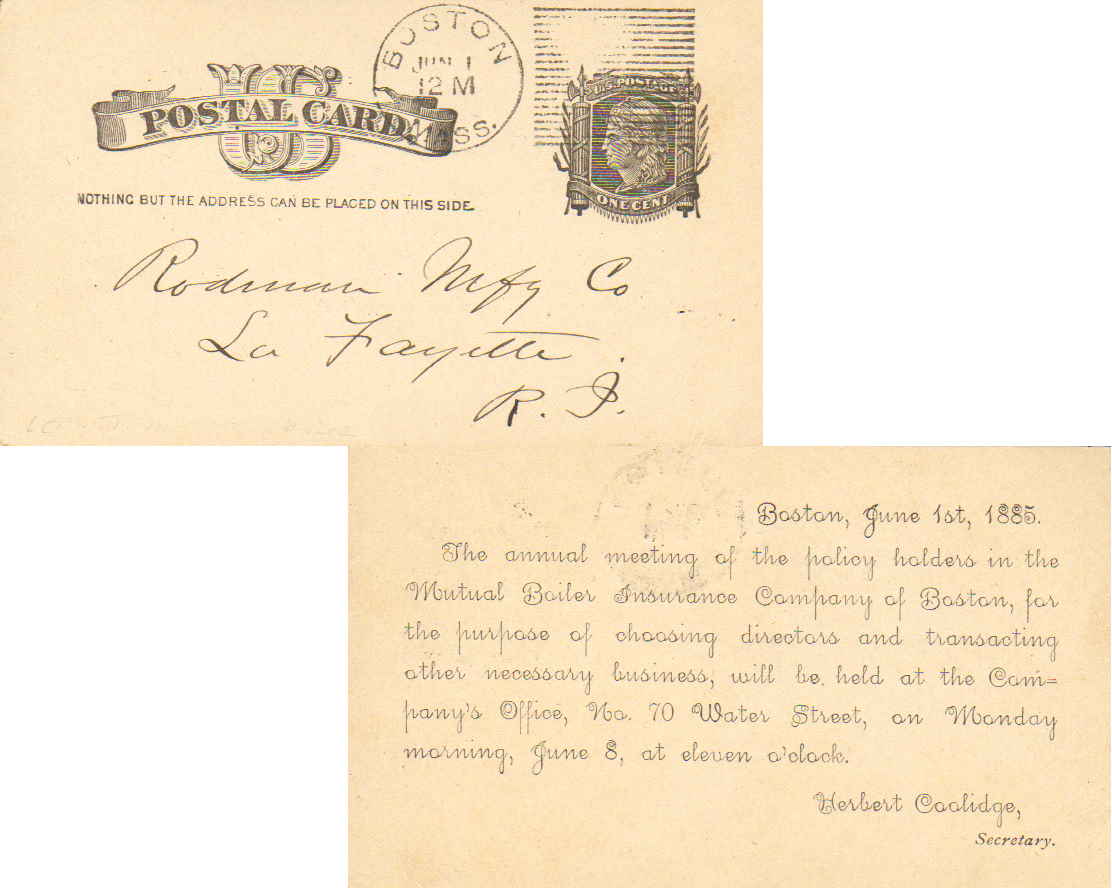 BOSTON
JUN 1
12 M
MASS.
U.S. POSTAGE
US
POSTAL CARD.
ONE CENT
NOTHING BUT THE ADDRESS CAN BE PLACED ON THIS SIDE.
Rodman Mfg Co
La Fayette
R. I.
Boston, June 1st, 1885.
The annual meeting of the policy holders in the
Mutual Boiler Insurance Company of Boston, for
the purpose of choosing directors and transacting
other necessary business, will be held at the Com=
pany's Office, No. 70 Water Street, on Monday
morning, June 8, at eleven o'clock.
Herbert Coolidge,
Secretary.